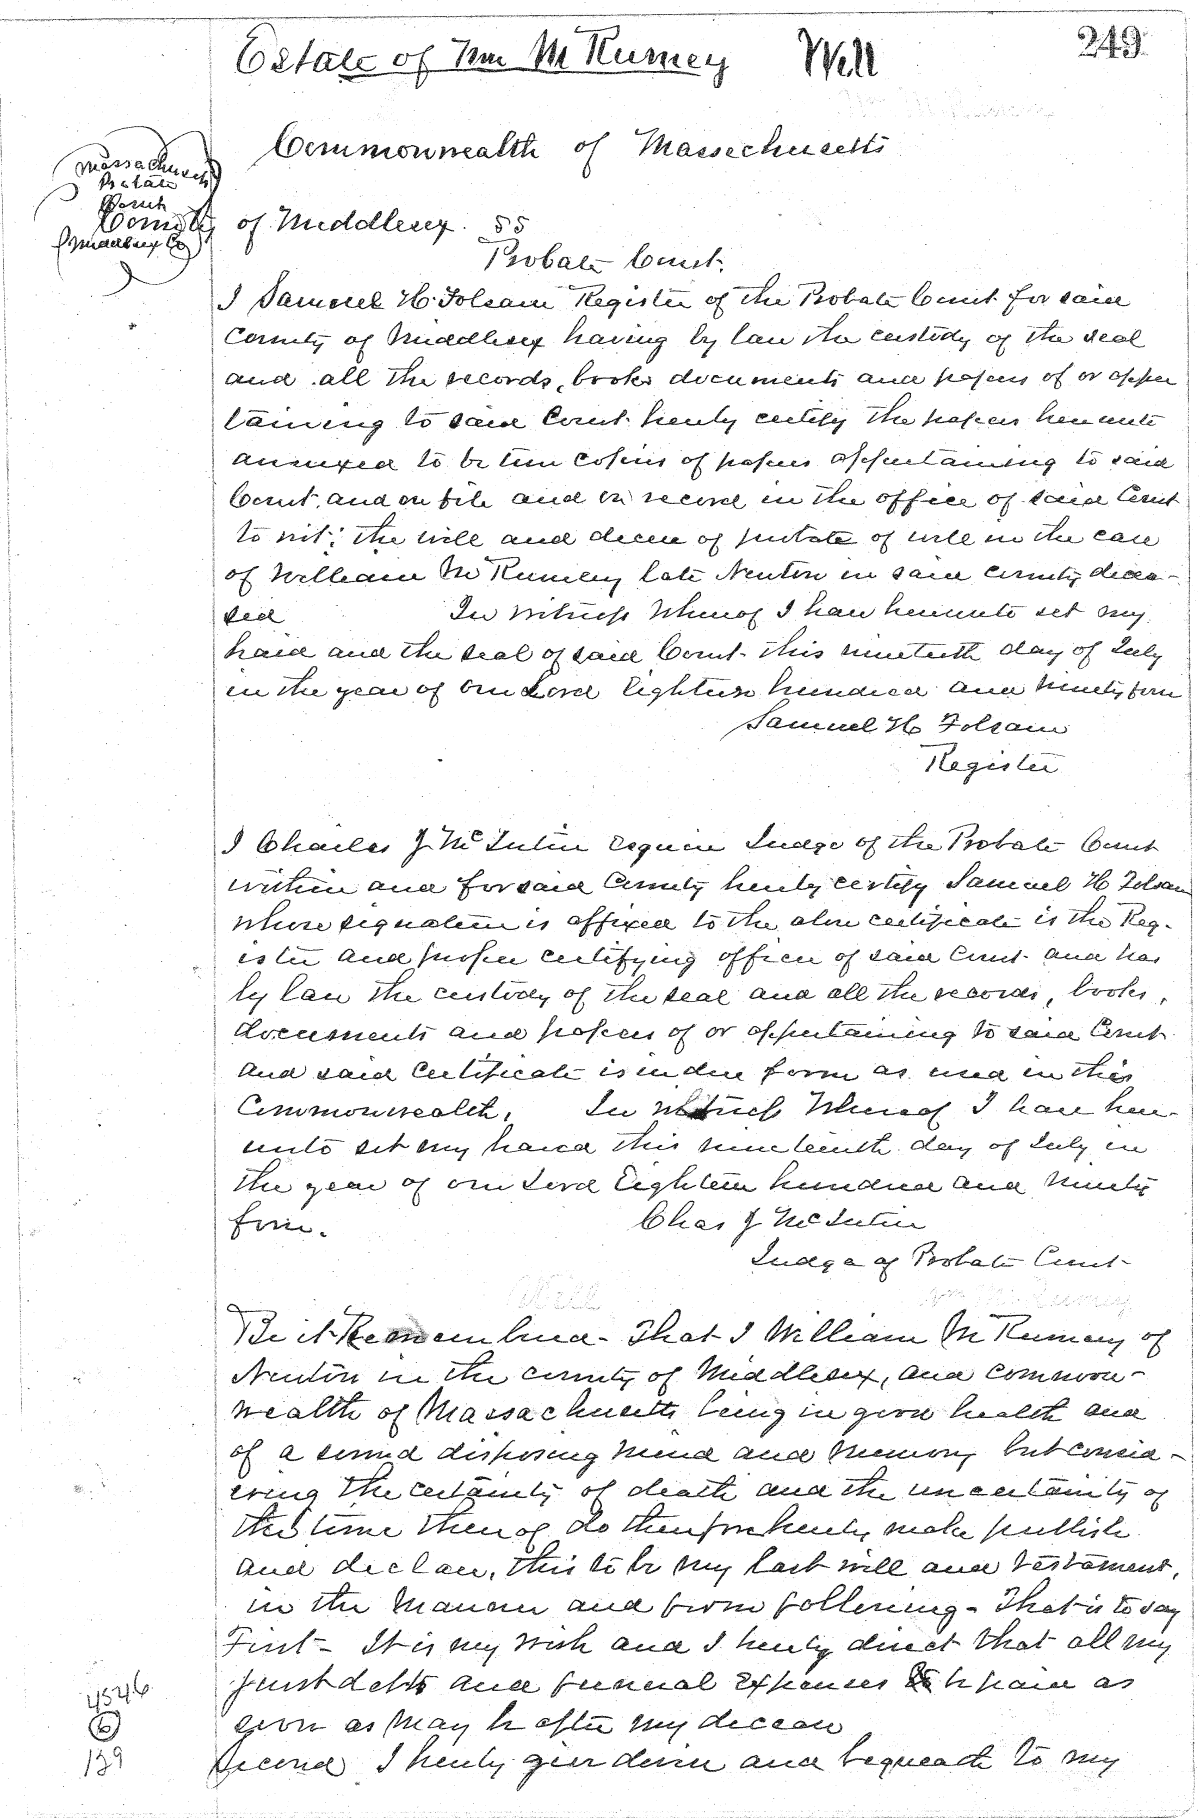 Estate of Wm M Rumey Will 249
Commonwealth of Massachusetts
Massachusetts
Probate
Court
Middlesex Co
County of Middlesex. SS
Probate Court.
I Samuel H. Folsom Register of the Probate Court for said
County of Middlesex having by law the custody of the seal
and all the records, books documents and papers of or apper
taining to said Court hereby certify the papers hereunto
annexed to be true copies of papers appertaining to said
Court, and on file and on record in the office of said Court
to wit: the will and decree of probate of will in the case
of William M Rumey late Newton in said county decea-
sed In witness Whereof I have hereunto set my
hand and the seal of said Court this nineteenth day of July
in the year of our Lord Eighteen hundred and ninety four
Samuel H Folsom
Register
I Charles J. McIntire esquire Judge of the Probate Court
within and for said County hereby certify Samuel H Folsom
whose signature is affixed to the above certificate is the Reg-
ister and proper certifying officer of said Court and has
by law the custody of the seal and all the records, books,
documents and papers of or appertaining to said Court
and said certificate is in due form as used in this
Commonwealth. In witness Whereof I have here-
unto set my hand this nineteenth day of July in
the year of our Lord Eighteen hundred and ninety
four. Chas J McIntire
Judge of Probate Court
Will
Wm M Rumey
Be it Remembered - That I William M Rumey of
Newton in the county of Middlesex, and common-
wealth of Massachusetts being in good health and
of a sound disposing mind and memory but consid-
ering the certainty of death and the uncertainty of
the time thereof do therefore hereby make publish
and declare, this to be my last will and testament,
in the manner and form following - That is to say
First - It is my wish and I hereby direct that all my
just debts and funeral expenses be paid as
soon as may be after my decease
Second I hereby give devise and bequeath to my
4546
6
139